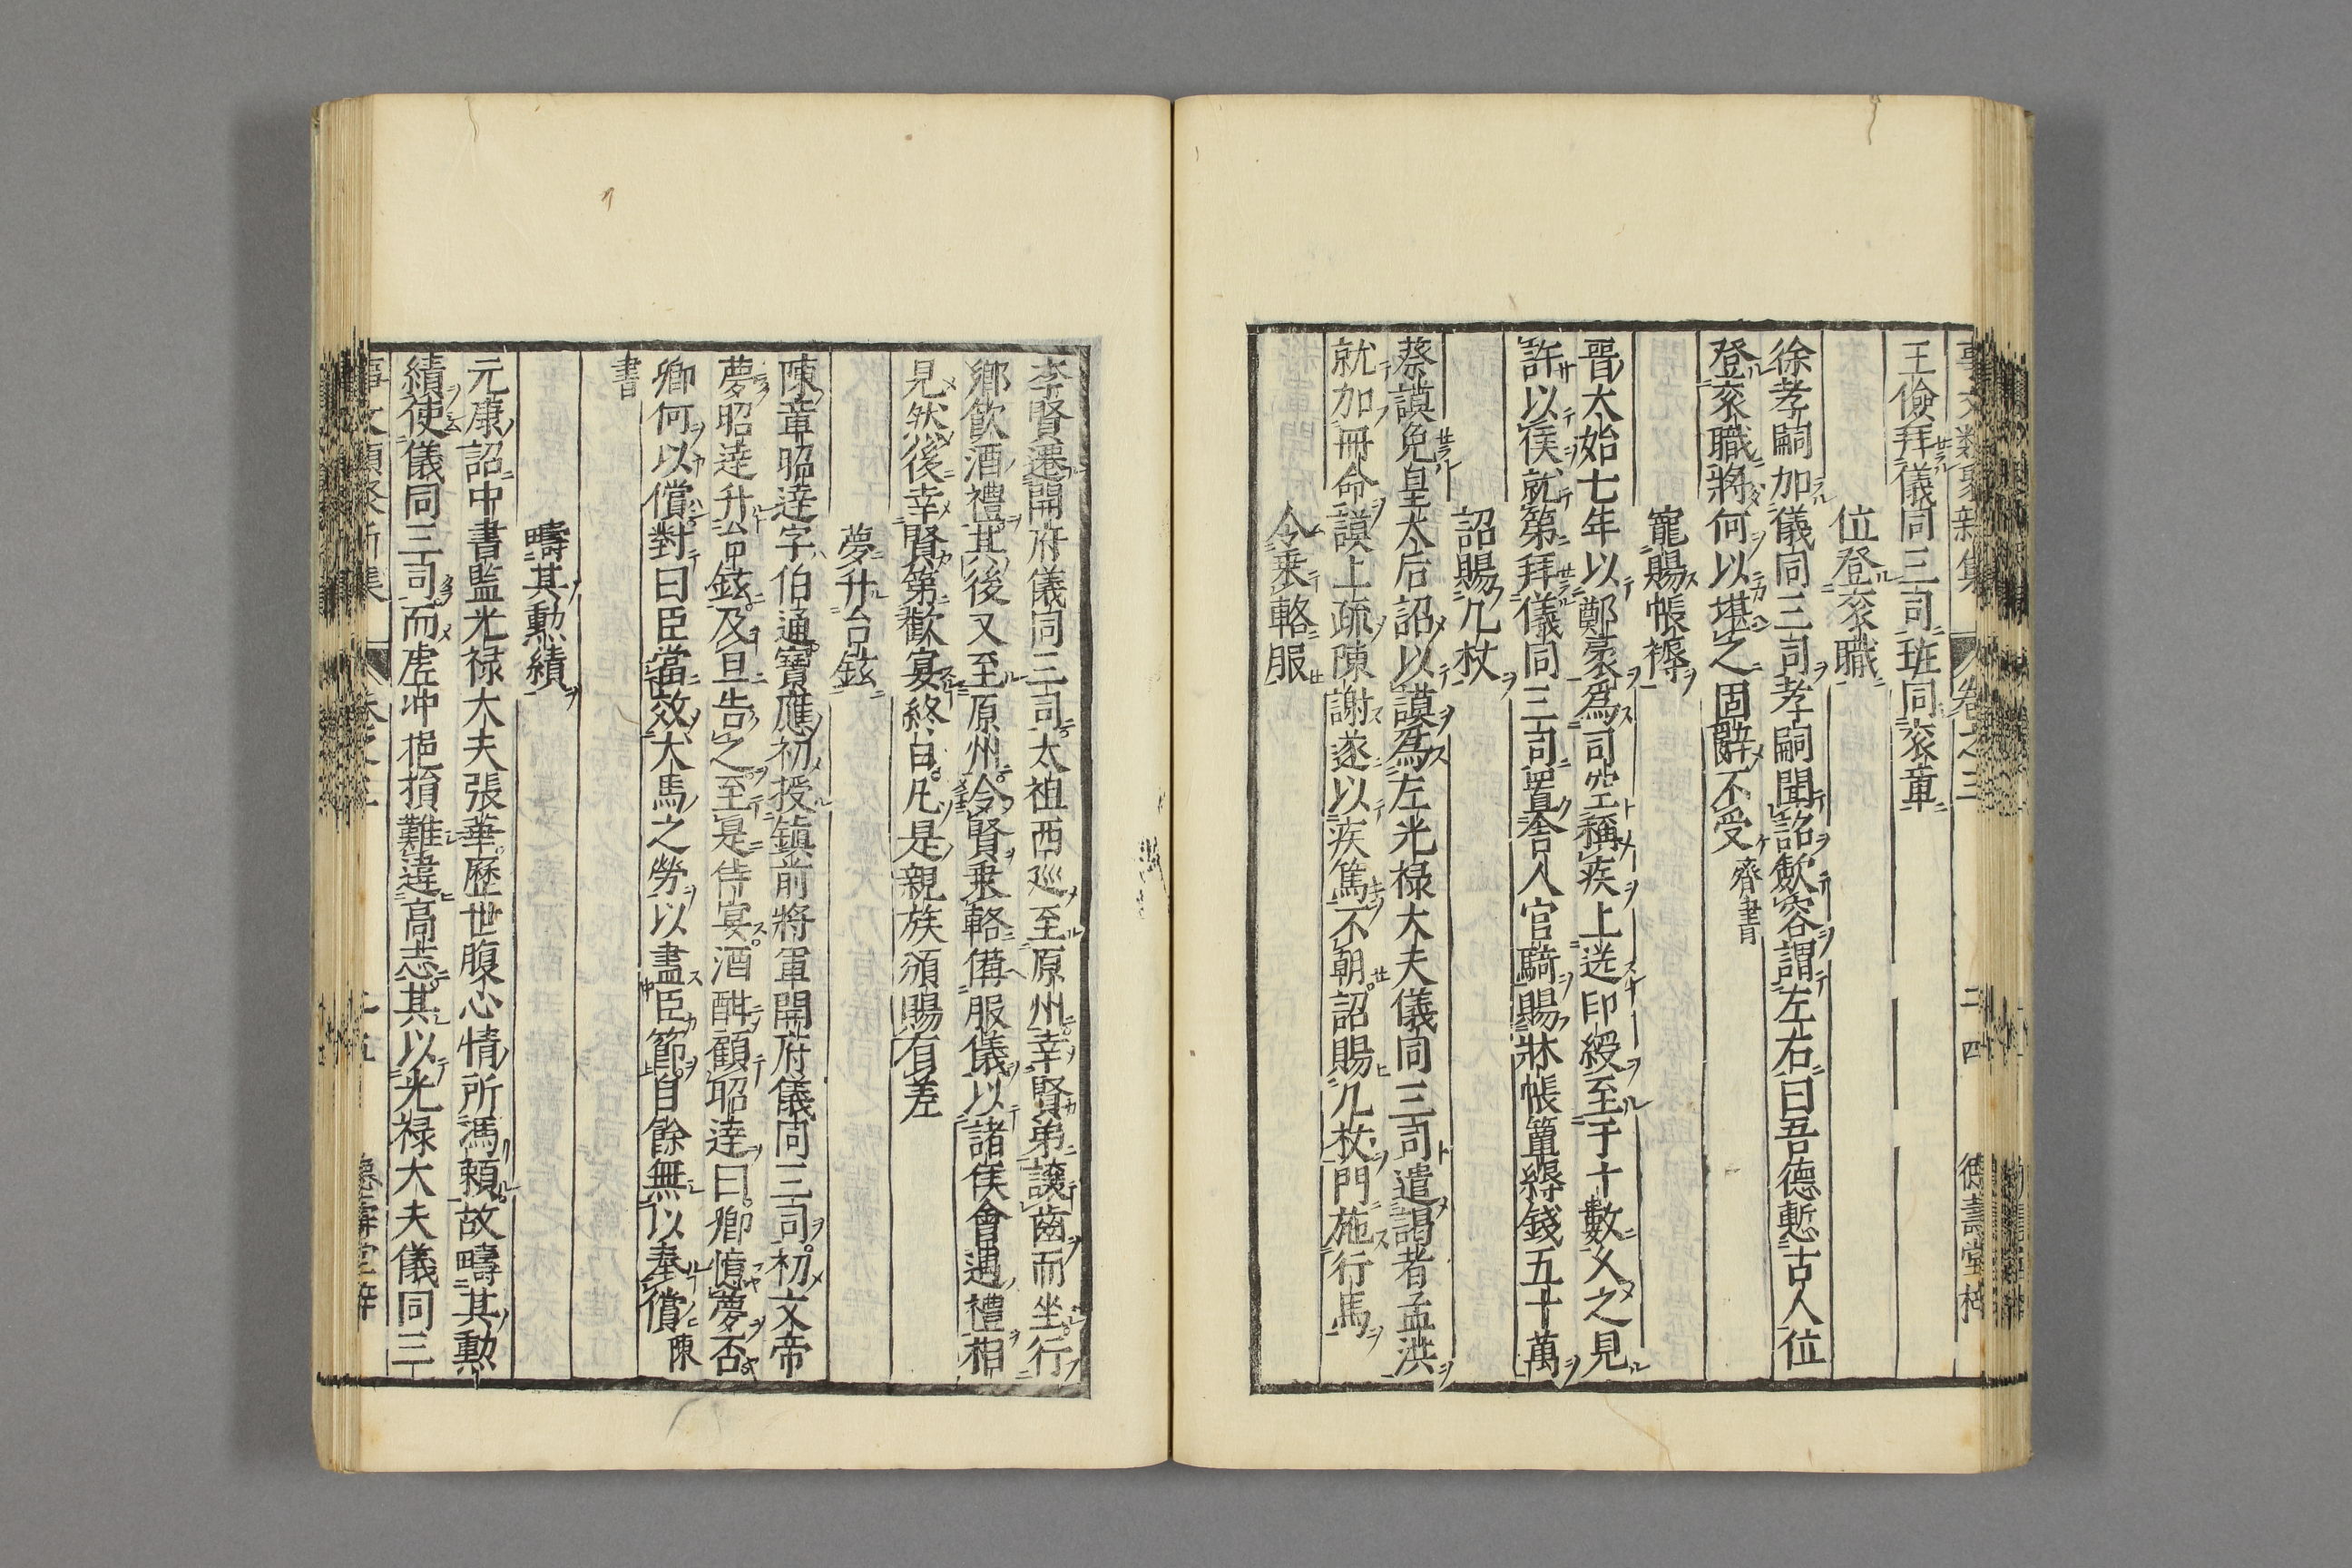 事文類聚新集 卷之三 二四 德壽堂梓
王儉拜儀同三司班同衮章
位登衮職
徐孝嗣加儀同三司孝嗣聞詔歛容謂左右曰吾德慙古人位
登衮職將何以堪之固辭不受齊書
寵賜帳褥
晉太始七年以鄭袤爲司空稱疾上送印綬至于十數父之見
許以侯就第拜儀同三司置舍人官騎賜牀帳簟褥錢五十萬
詔賜几杖
蔡謨免皇太后詔以謨爲左光禄大夫儀同三司遣謁者孟洪
就加冊命謨上疏陳謝遂以疾篤不朝詔賜几杖門施行馬
令乗輅服
李賢遷開府儀同三司太祖西廵至原州幸賢弟讓齒而坐行
鄉飲酒禮其後又至原州令賢乗輅備服儀以諸侯會遇禮相
見然後幸賢第歡宴終日凡是親族頒賜有差
夢升台鉉
陳章昭達字伯通寶應初授鎮前將軍開府儀同三司初文帝
夢昭達升台鉉及旦告之至是侍宴酒酣顧昭達曰卿憶夢否
卿何以償對曰臣當效犬馬之勞以盡臣節自餘無以奉償陳
書
疇其勲績
元康詔中書監光禄大夫張華歷世腹心情所馮賴故疇其勲
績使儀同三司而虚冲挹損難違高志其以光禄大夫儀同三